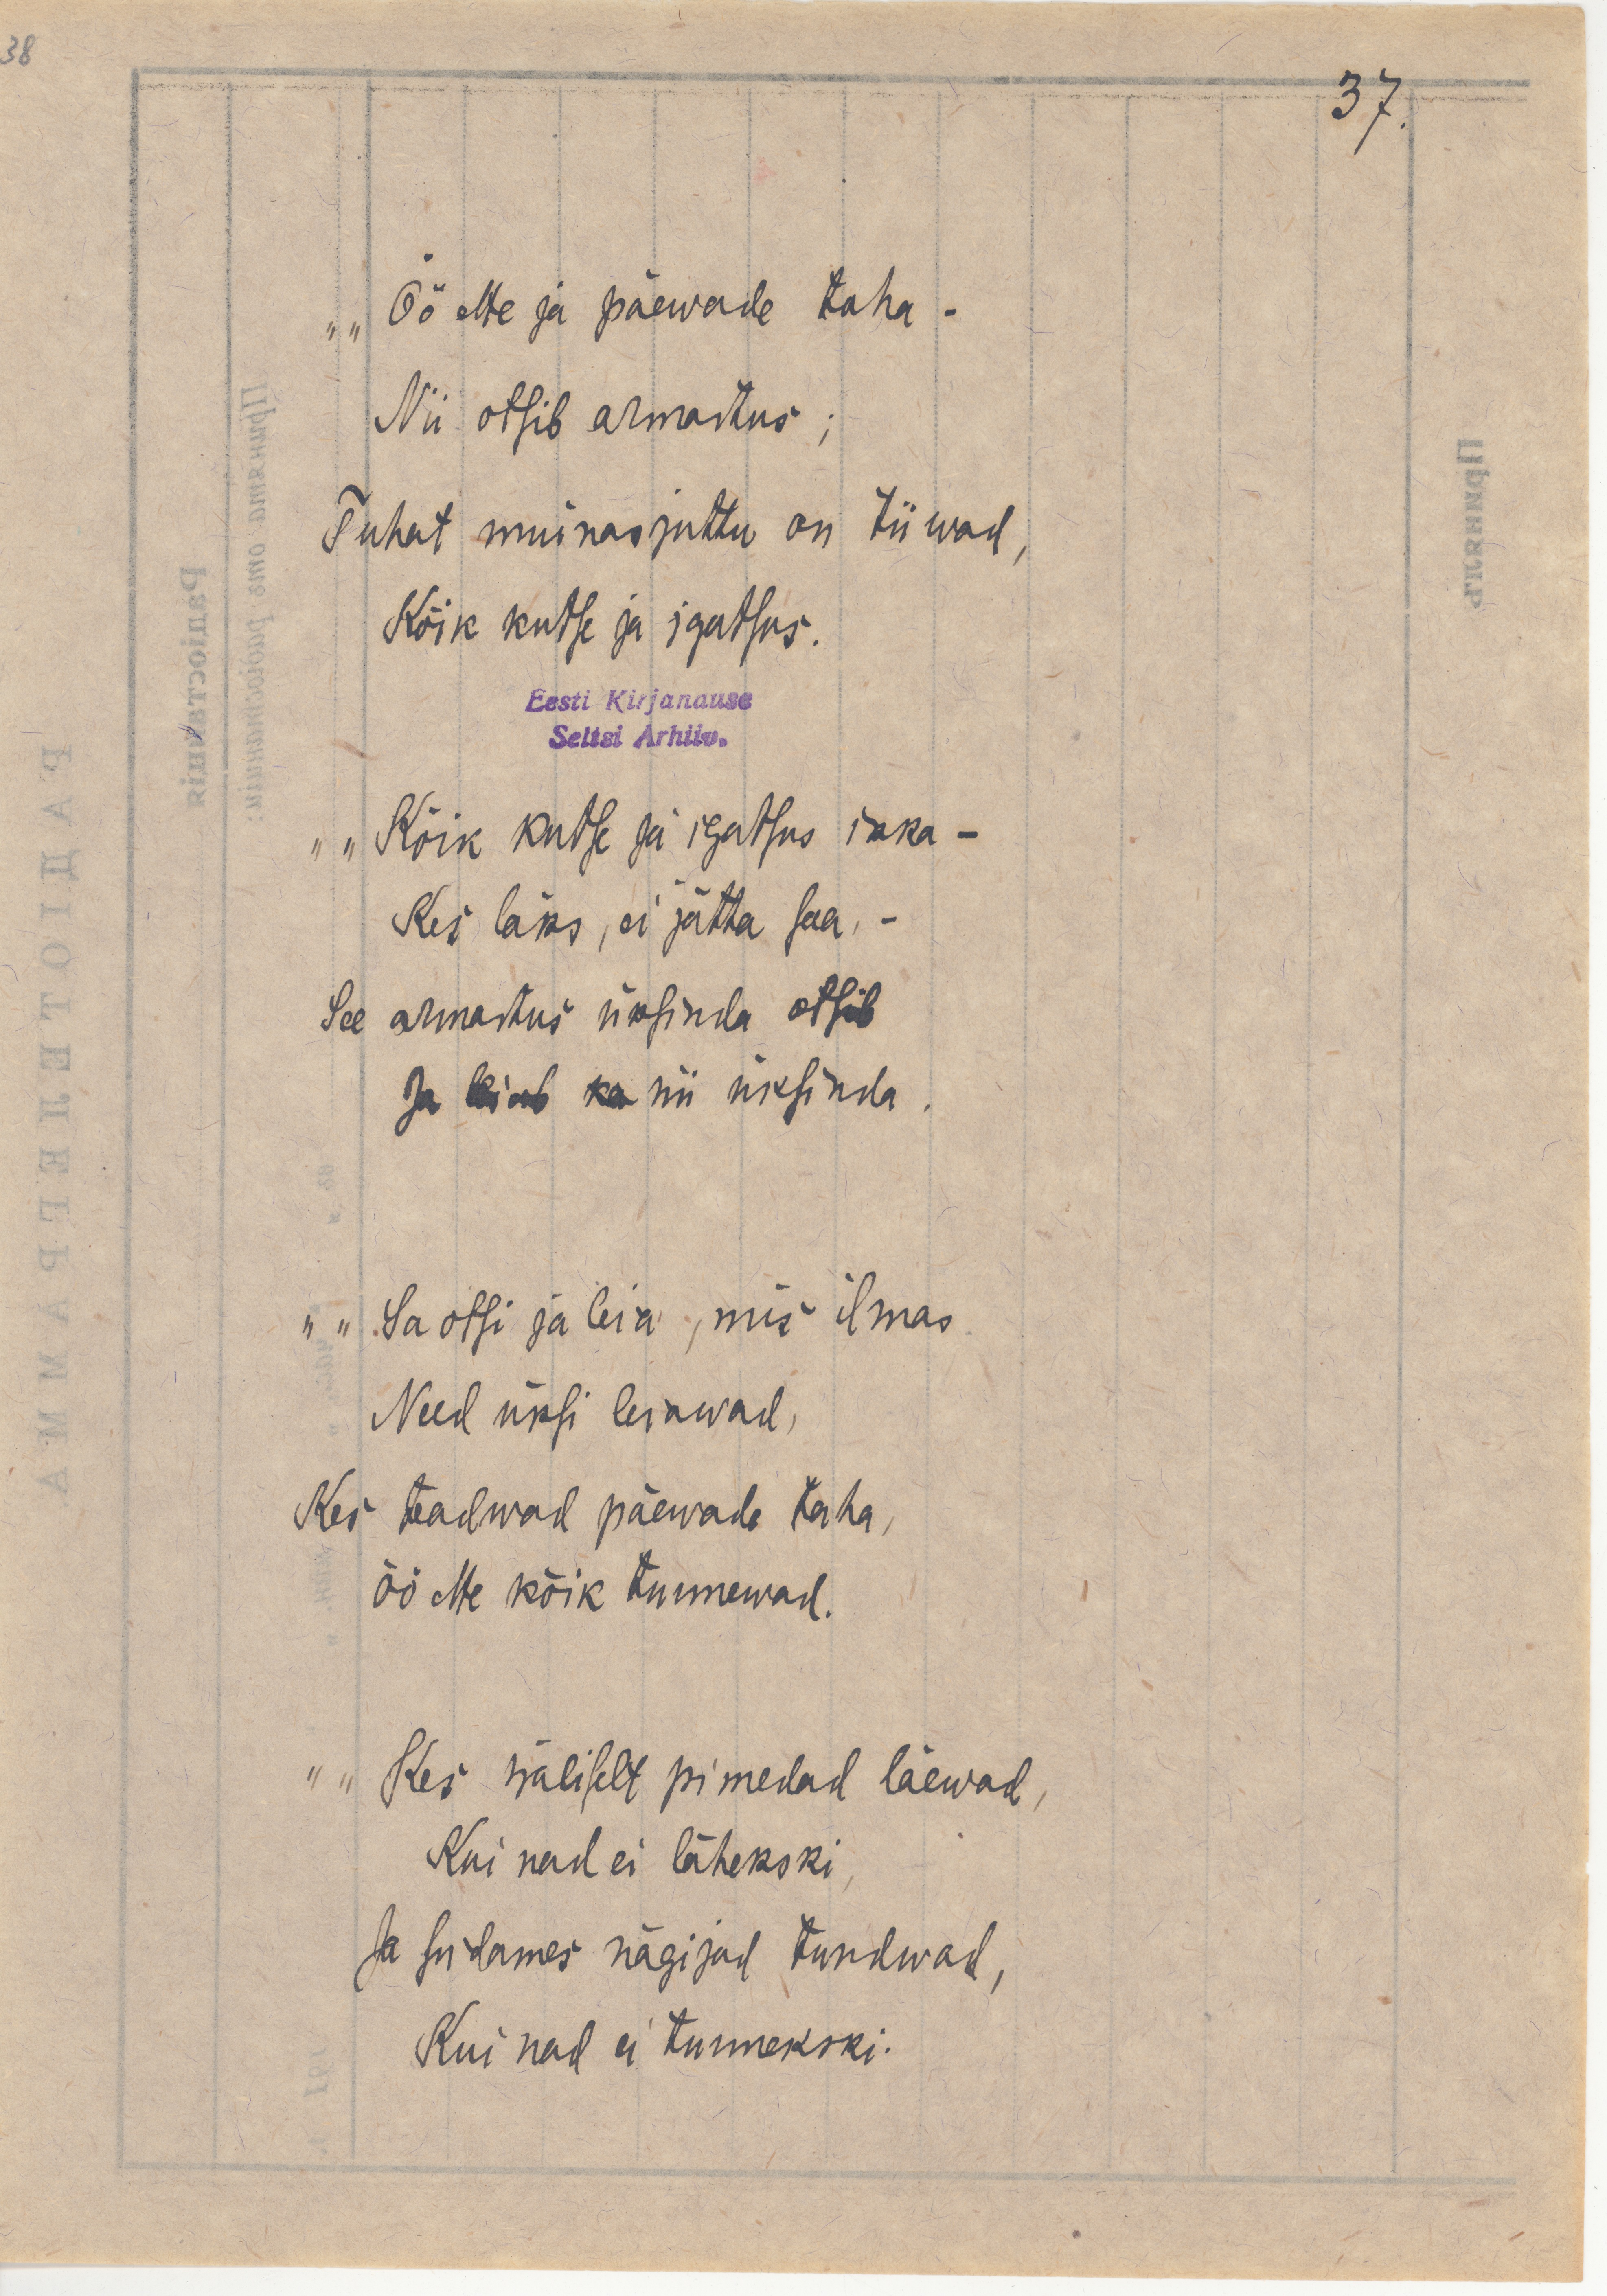 38
37.
„ „ Öö ette ja päewade taha -
Nii otsib armastus ;
Tuhat muinasjuttu on tiiwad,
Kõik kutse ja igatsus.
Eesti Kirjanduse
Seltsi Arhiiv.
„ „ Kõik kutse ja igatsus ikka -
Kes läks, ei jätta saa, -
See armastus üksinda otsib
Ja leiab ka nii üksinda.
„ „ Sa otsi ja leia, mis ilmas
Need üksi leiawad,
Kes teadwad päewade taha,
öö ette kõik tunnewad.
„ „ Kes wäliselt pimedad läewad,
Kui nad ei lähekski,
Ja südames nägijad tundwad,
Kui nad ei tunnekski.
РАДІОТЕЛЕГРАММА
Радіостанція
Принята отъ радіостанціи:
Принялъ